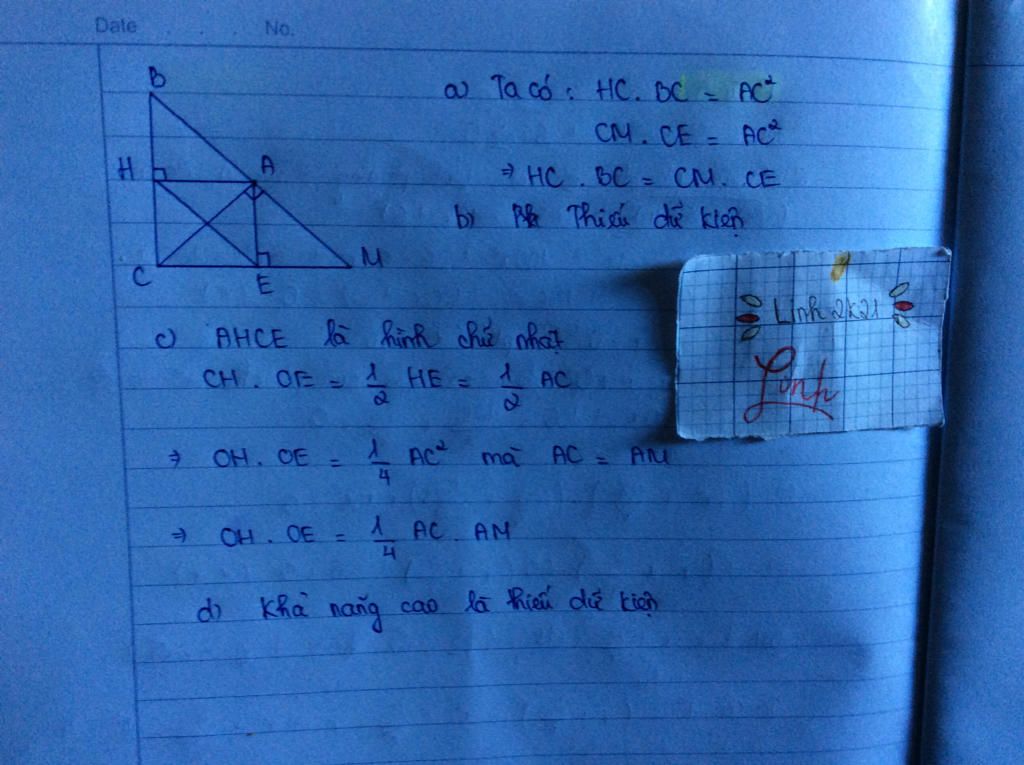 Date No.
B
H A
C E M
a) Ta có : HC . BC = AC²
CM . CE = AC²
⇒ HC . BC = CM . CE
b) Thiếu dữ kiện
Linh 2k21
Linh
c) AHCE là hình chữ nhật
CH . OE = 1/2 HE = 1/2 AC
⇒ OH . OE = 1/4 AC² mà AC = AM
⇒ OH . OE = 1/4 AC . AM
d) Khả năng cao là thiếu dữ kiện